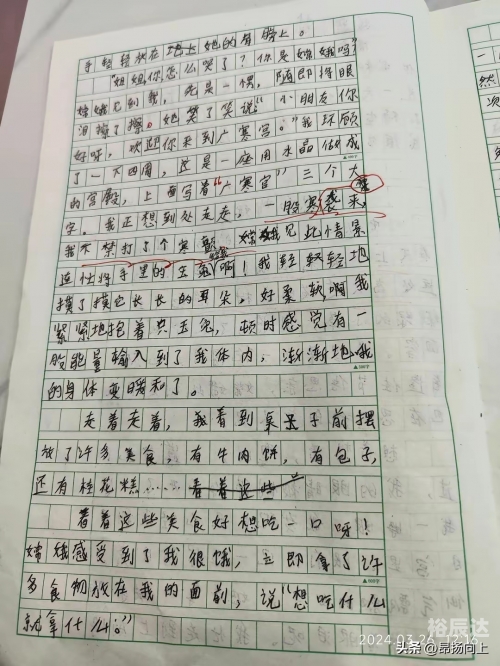 手轻轻放在地上她的肩膀上。
"姐姐你怎么哭了?你是嫦娥吗?"
嫦娥见到我,先是一愣,随即将眼
泪擦了擦。她笑了笑说:"小朋友你
好呀,欢迎你来到广寒宫。"我环顾
了一下四周,这是一座用水晶做成
的宫殿,上面写着"广寒宫"三个大
字。我正想到处走走,一股寒袭来,
我不禁打了个寒颤,嫦娥见此情景
连忙将手里的玉兔 啊!我轻轻轻地
摸了摸它长长的耳朵,好柔软啊我
紧紧地抱着只玉兔,顿时感觉有一
股能量输入到了我体内,渐渐地我
的身体变暖和了。
走着走着,我看到桌子前摆
放了许多美食,有牛肉饼,有包子,
还有桂花糕……看着这些
看着这些美食好想吃一口呀!
嫦娥感受到了我很饿,立即拿了许
多食物放在我的面前,说"想吃什么
就拿什么。"
2024.03.26 12:16
裕辰达
头条 @昂扬向上